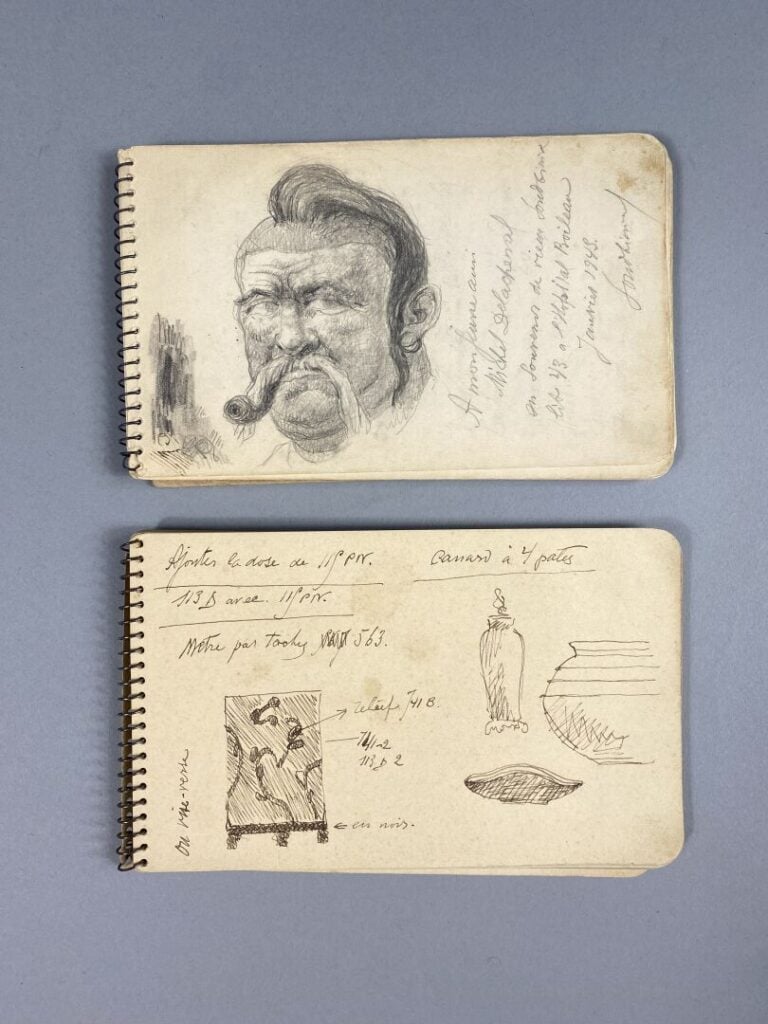 A mon jeune ami
Michel Delachenal
en souvenir de vieux
lits 43 à l'Hôpital Boileau
Janvier 1945.
Ajouter la dose de 115 PN.
113 B avec 115 PN.
Metre par taches 563.
canard à 4 pates
reliefs 741 B.
741-2
113 B 2
← en noir.
ou vise-versa